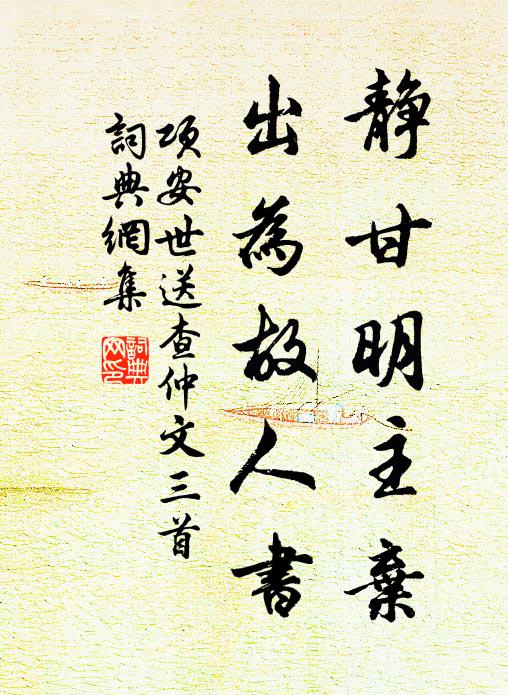 静甘明主棄
出為故人書
項安世送查仲文三首
詞典網集
詞典
网印